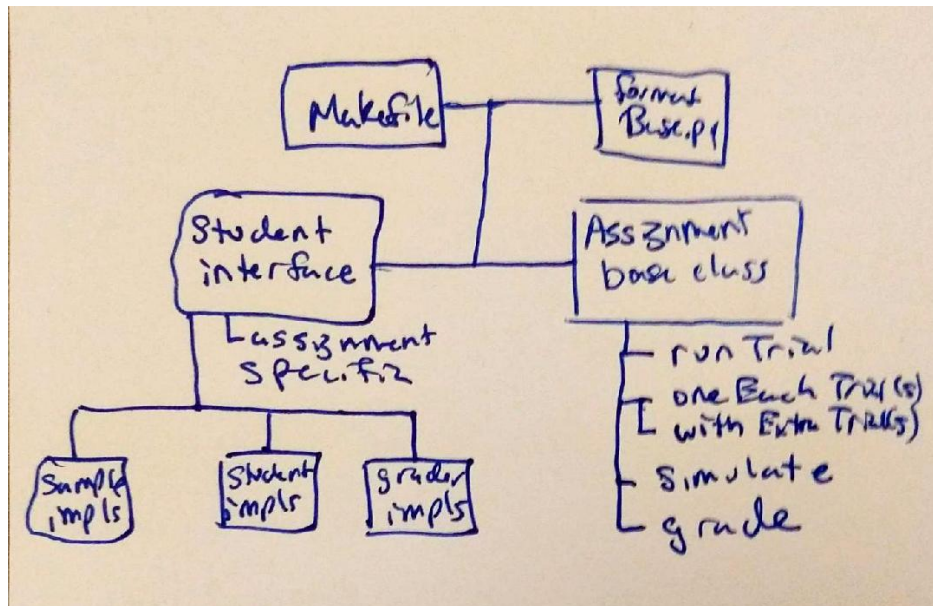 Makefile
format
Base.py
Student
interface
Assignment
base class
assignment
specific
run Trial
one Each Trial(s)
with Extra Trial(s)
simulate
grade
Sample
impls
Student
impls
grader
impls